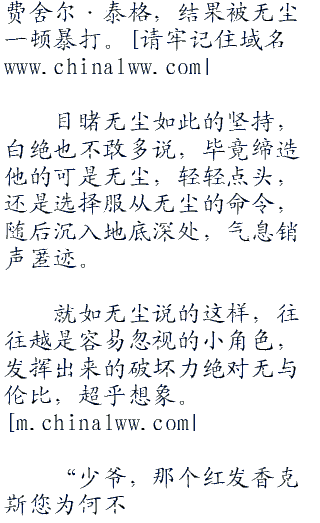 费舍尔·泰格，结果被无尘
一顿暴打。[请牢记住域名
www.chinalww.com|
目睹无尘如此的坚持，
白绝也不敢多说，毕竟缔造
他的可是无尘，轻轻点头，
还是选择服从无尘的命令，
随后沉入地底深处，气息销
声匿迹。
就如无尘说的这样，往
往越是容易忽视的小角色，
发挥出来的破坏力绝对无与
伦比，超乎想象。
[m.chinalww.com|
“少爷，那个红发香克
斯您为何不